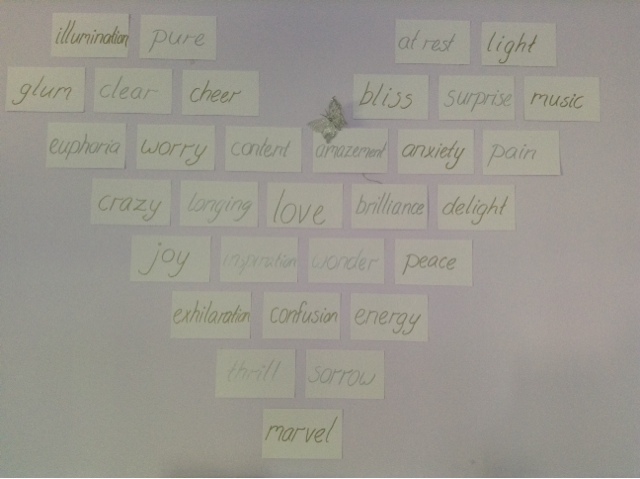 illumination pure at rest light
glum clear cheer bliss surprise music
euphoria worry content amazement anxiety pain
crazy longing love brilliance delight
joy inspiration wonder peace
exhilaration confusion energy
thrill sorrow
marvel